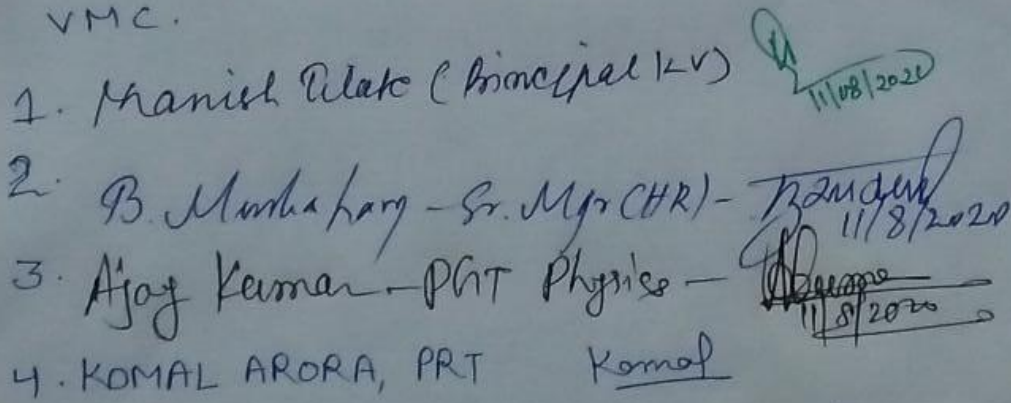 VMC.
1. Manish Tilake (Principal KV) 11/08/2020
2. B. - Sr. Mgr (HR) - 11/8/2020
3. Ajay Kumar - PGT Physics - 11/8/2020
4. KOMAL ARORA, PRT Komal